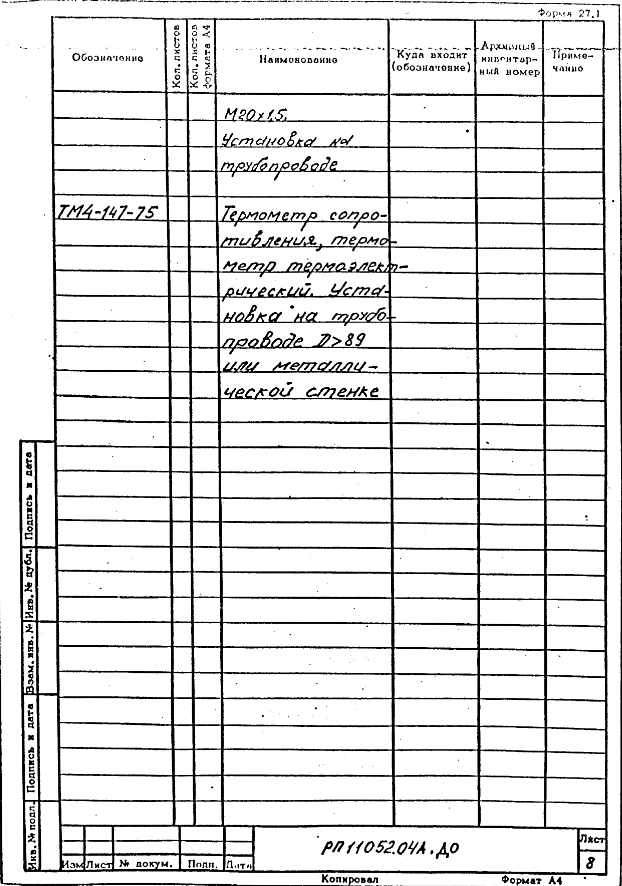 Форма 27.1
Обозначение
Кол. листов
Кол. листов
формата А4
Наименование
Куда входит
(обозначение)
Архивный
инвентар-
ный номер
Приме-
чание
М20×1,5.
Установка на
трубопроводе
ТМ4-147-75
Термометр сопро-
тивления, термо-
метр термоэлект-
рический. Уста-
новка на трубо-
проводе D>89
или металли-
ческой стенке
Подпись и дата
Инв. № дубл.
Взам. инв. №
Подпись и дата
Инв. № подл.
Изм Лист № докум. Подп. Дата
РП11052.04А.ДО
Лист
8
Копировал
Формат А4